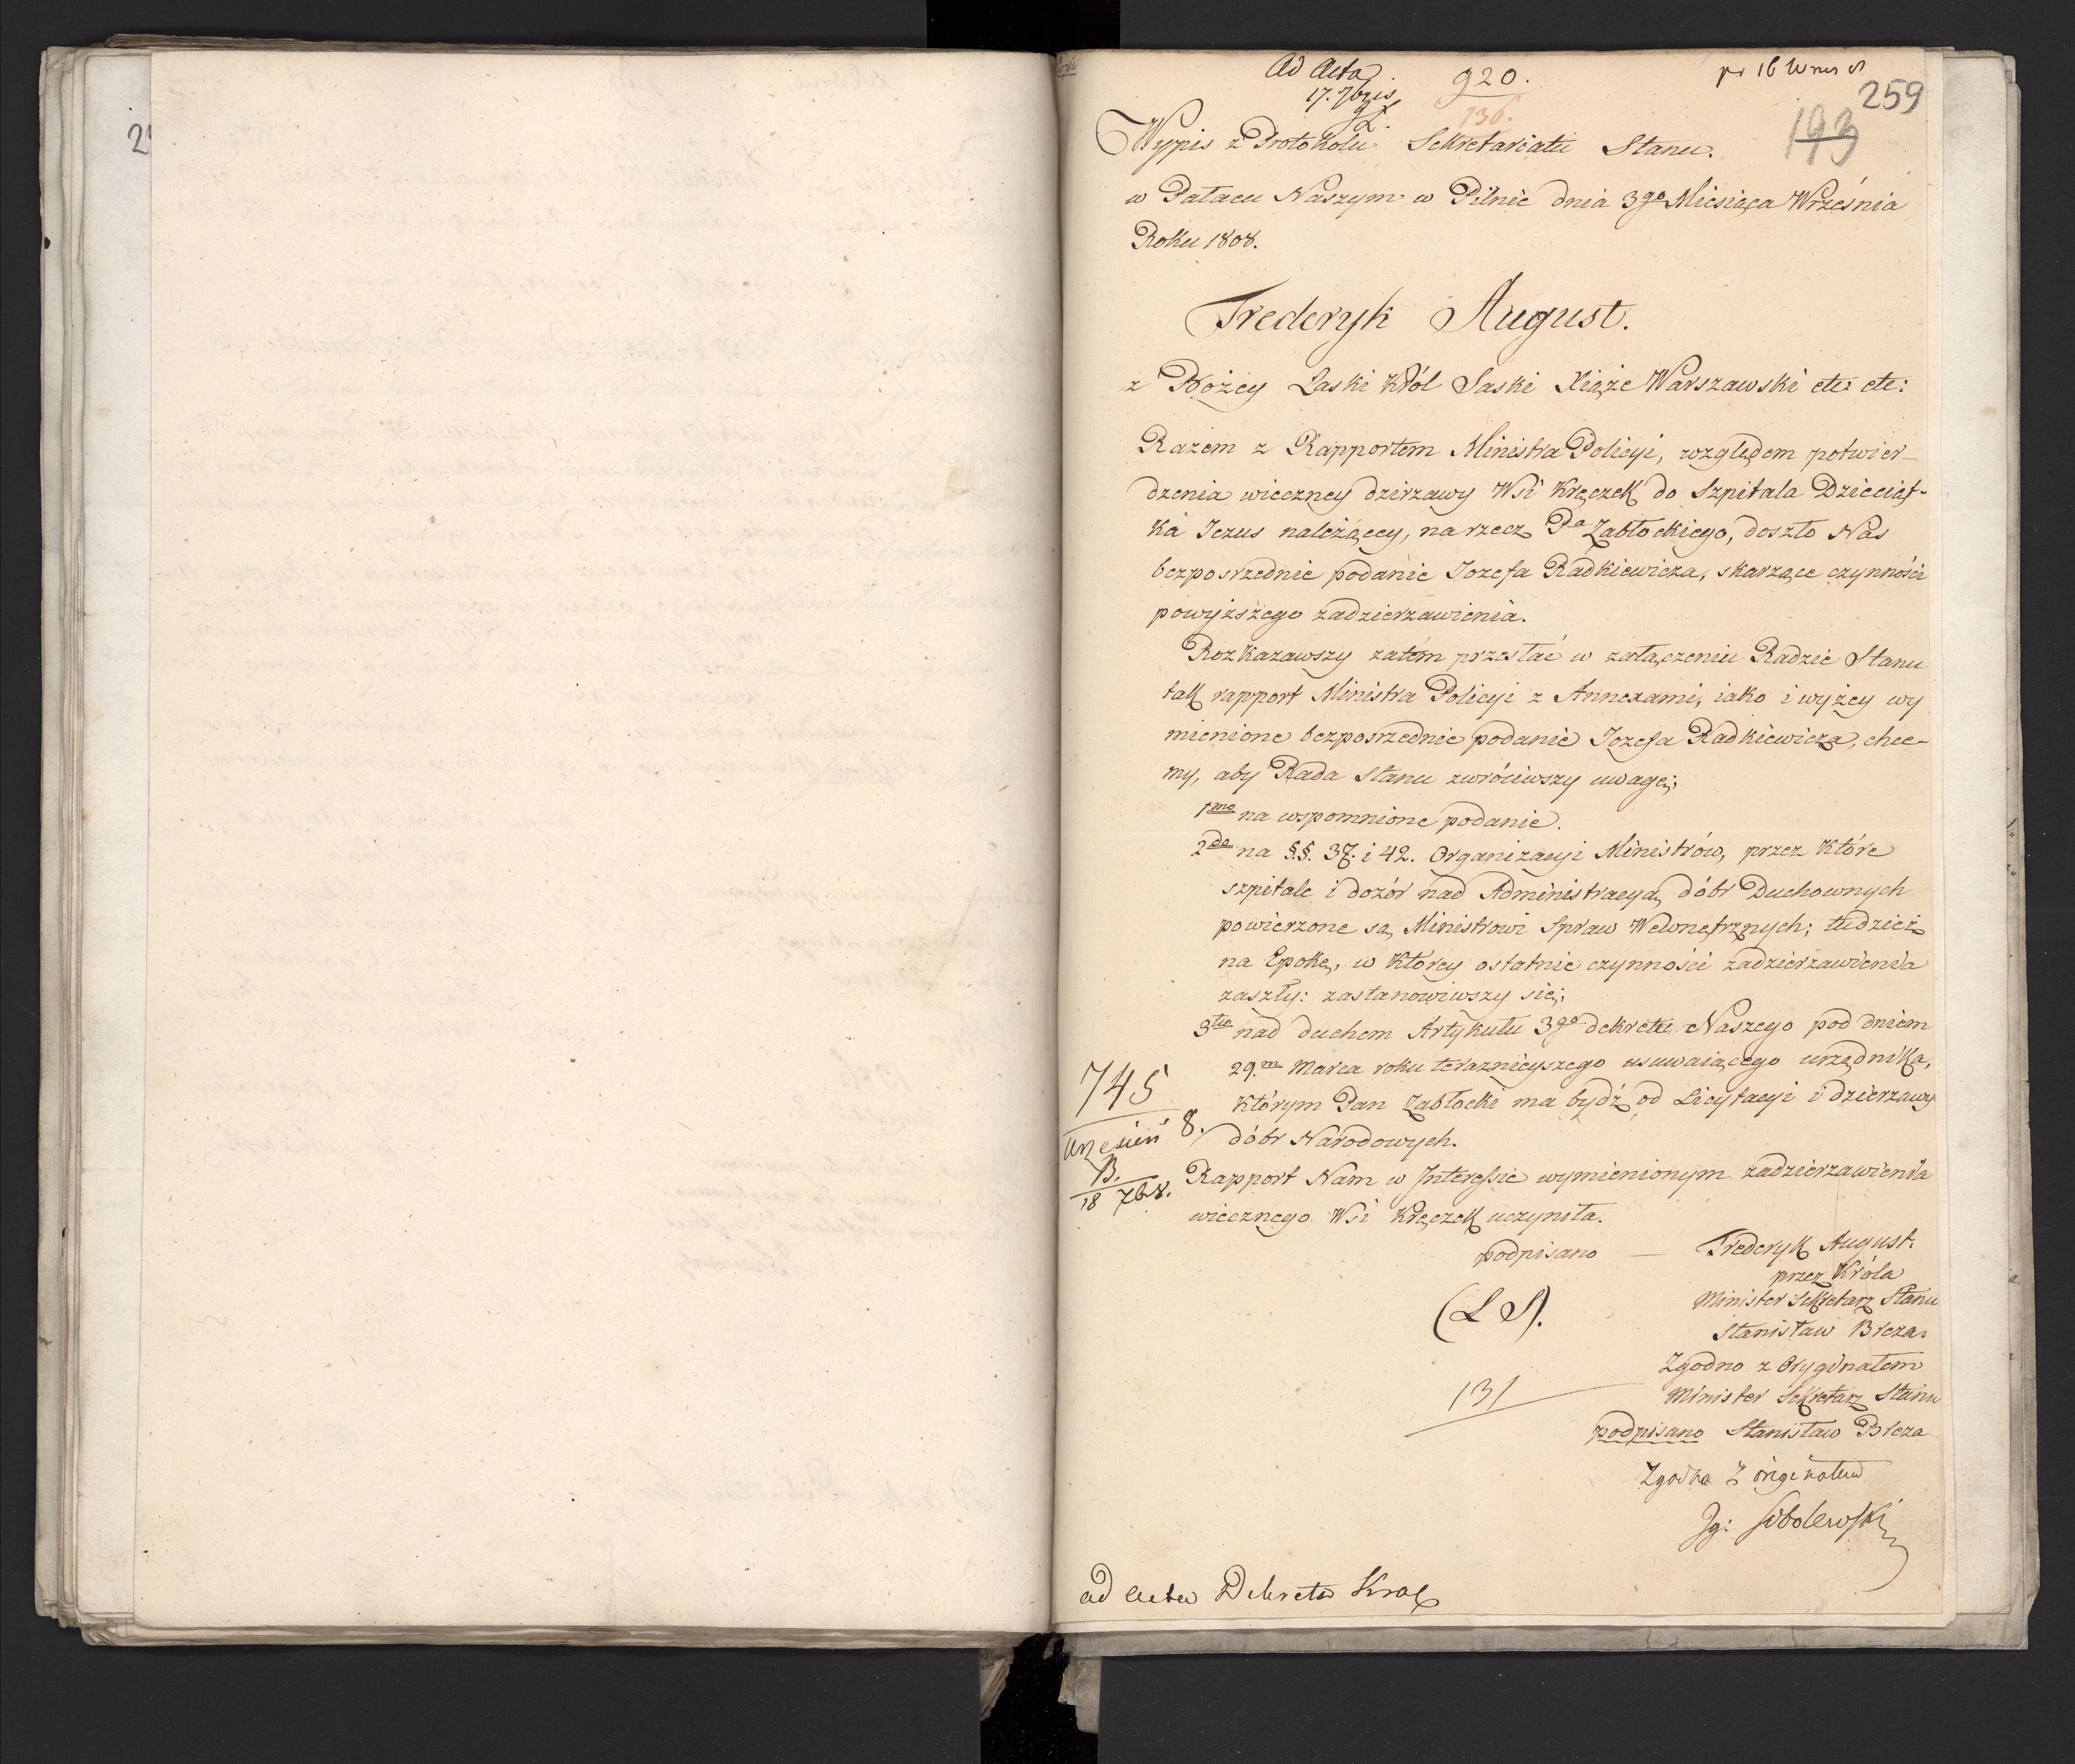 Ad Acta
17. 7bris
920.
136.
259
193
Wypis z Protokolu Sekretariatu Stanu.
w Pałacu Naszym w Pilnic dnia 3go Miesiąca Września
Roku 1808.
Frederyk August.
z Bożey Łaski Król Saski Xiąże Warszawski etc: etc:
Razem z Rapportem Ministra Policyi, względem potwier-
dzenia wieczney dzirzawy Wsi Kręczek do Szpitala Dzieciąt-
ka Iezus należącey, na rzecz Pa Zabłockiego, doszło Nas
bezposrzednie podanie Iozefa Radkiewicza, skarzące czynności
powyższego zadzierzawienia.
Rozkazawszy zatém przesłać w załączeniu Radzie Stanu
tak rapport Ministra Policyi z Annexami, iako i wyżey wy
mienione bezposrzednie podanie Iozefa Radkiewicza, chce-
my, aby Rada Stanu zwróciwszy uwagę;
1mo na wspomnione podanie.
2do na §.§. 37. i 42. Organizacyi Ministrów, przez które
szpitale i dozór nad Administracyą dóbr Duchownych
powierzone są Ministrowi Spraw Wewnętrznych; tudzież
na Epokę, w którey ostatnie czynności zadzierzawienia
zaszły: zastanowiwszy się;
3tio nad duchem Artykułu 3go dekretu Naszego pod dniem
29.m Marca roku teraznieyszego usuwaiącego urzędnika,
którym Pan Zabłocki ma bydź od Licytacyi i dzierzawy
dóbr Narodowych.
745
Wrzesień 8.
B.
18 7br.
Rapport Nam w Interessie wymienionym zadzierzawienia
wiecznego Wsi Kręczek uczyniła.
podpisano — Frederyk August.
przez Króla
Minister Sekretarz Stanu
(L S).
Stanisław Breza.
Zgodno z Oryginałem
131
Minister Sekretarz Stanu
podpisano Stanisław Breza
Zgodno z originałem
Ig: Sobolewski
ad acta Dekreta Krol